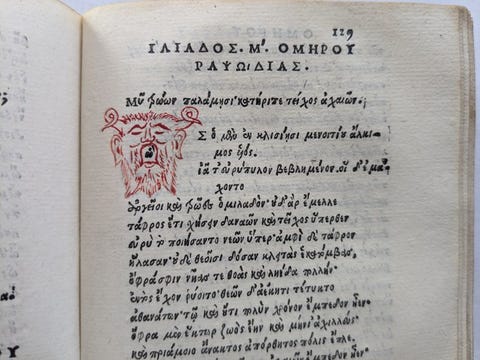 129
ΙΛΙΑΔΟΣ. Μ'. ΟΜΗΡΟΥ
ΡΑΨΩΔΙΑΣ.
Μῦ τρώων παλάμησι κατήριπε τεῖχος ἀχαιῶν·
Σ ὁ μὲν ἐν κλισίησι μενοιτίου ἄλκι-
μος υἱός.
ἰᾶτ' εὐρύπυλον βεβλημένον. οἱ δ' ἐμά
χοντο
ἀργεῖοι καὶ τρῶες ὁμιλαδὸν· οὐδ' ἄρ ἔμελλε
τάφρος ἔτι σχήσειν δαναῶν καὶ τεῖχος ὕπερθεν
εὐρὺ τὸ ποιήσαντο νεῶν ὕπερ· ἀμφὶ δὲ τάφρον
ἤλασαν· οὐδὲ θεοῖσι δόσαν κλειτὰς ἑκατόμβας,
ὄφρα σφιν νῆας τε θοὰς καὶ ληίδα πολλὴν
ἐντὸς ἔχον ῥύοιτο· θεῶν δ' ἀέκητι τέτυκτο
ἀθανάτων· τῶ καὶ ὄτι πλὺν χρόνον ἔμπεδον ἦεν·
ὄφρα μὲν ἕκτωρ ζωὸς ἔην καὶ μήνι' ἀχιλλεὺς
καὶ πριάμοιο ἄνακτος ἀπόρθητος πόλις ἔπλε